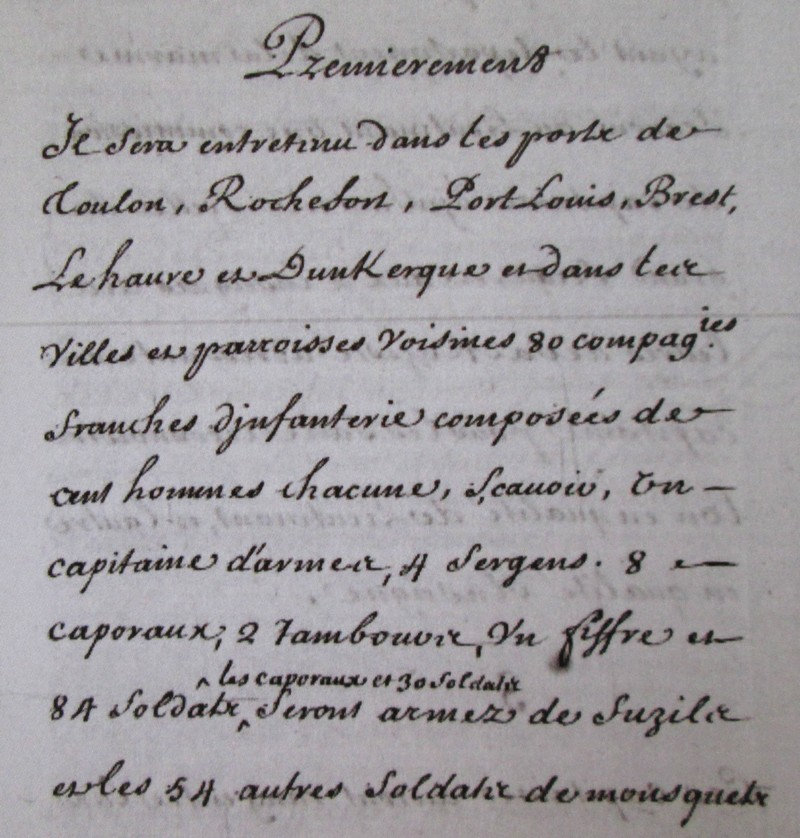 Premierement
Il sera entretenu dans les ports de
Toulon, Rochefort, Port Louis, Brest,
Le haure et Dunkerque et dans les
Villes et parroisses Voisines 80 compag.ies
franches d'jnfanterie composées de
cent hommes chacune, Sçauoir, Un
capitaine d'armes, 4 Sergens. 8
caporaux, 2 Tambours, Un fiffre et
les caporaux et 30 soldats
84 Soldats, Seront armez de fuzils
et les 54 autres Soldats de mousquets